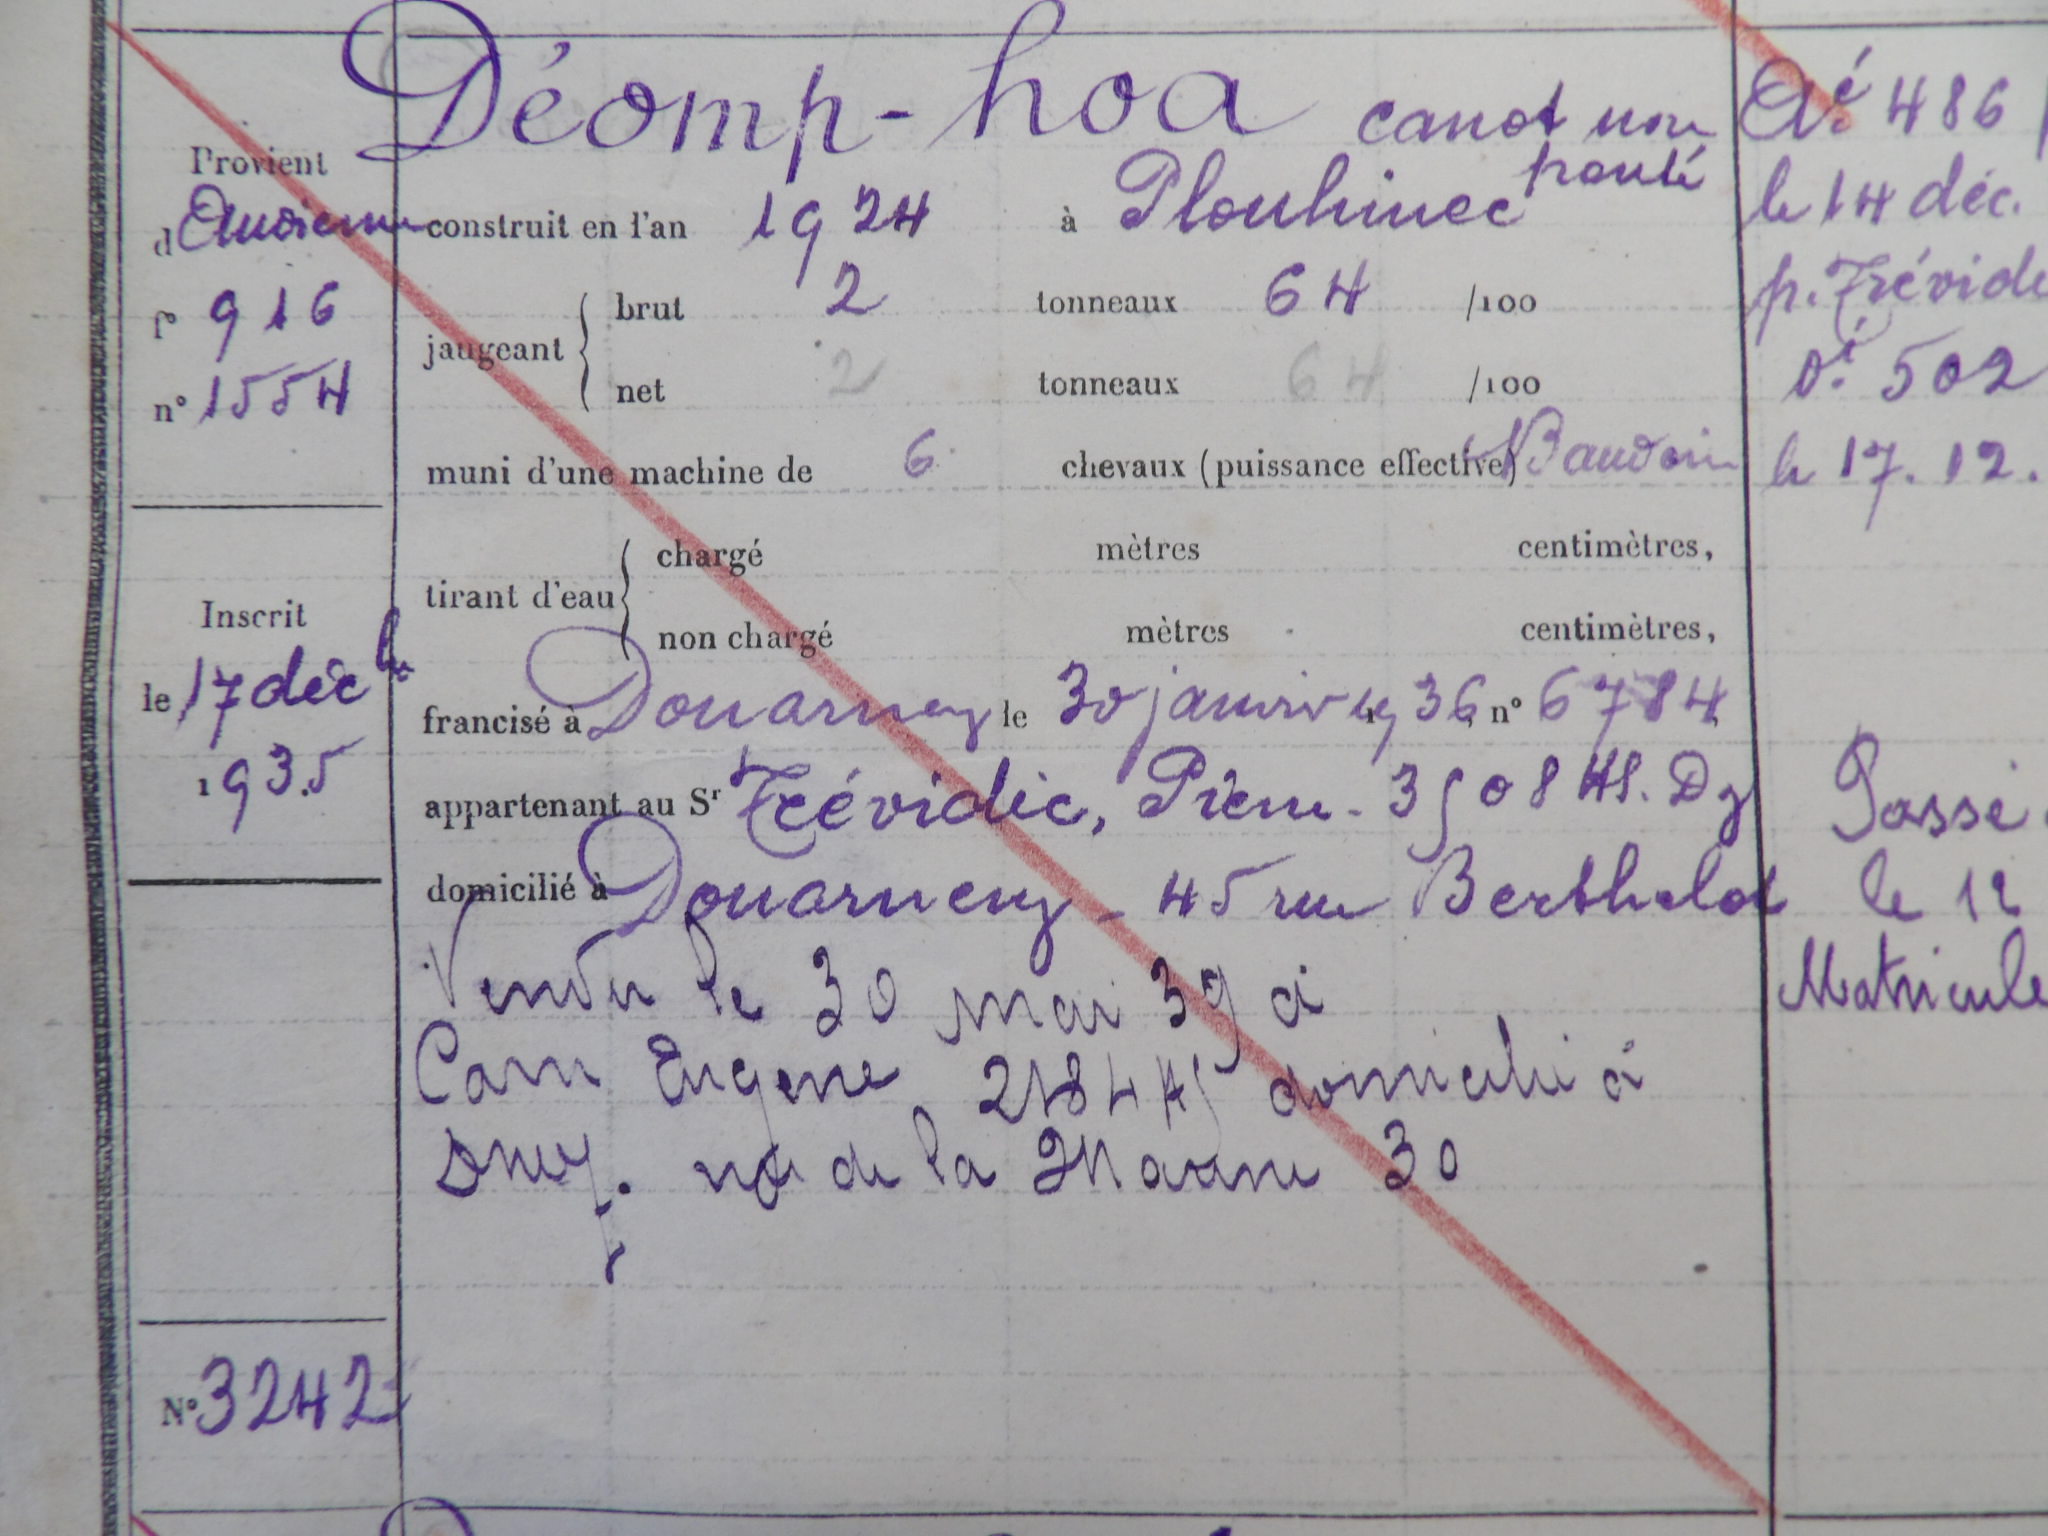 Déomp-hoa canot non
ponté
Provient
d'Audierne
f° 916
n° 1554
construit en l'an 1924 à Plouhinec
jaugeant
brut 2 tonneaux 64 /100
net 2 tonneaux 64 /100
muni d'une machine de 6 chevaux (puissance effective) Baudoin
tirant d'eau
chargé mètres centimètres,
non chargé mètres centimètres,
Inscrit
le 17 déc bre
1935
francisé à Douarnenez le 30 janvier 1936, n° 6784
appartenant au Sr Trévidic, Pierre - 3508 HS. Dz
domicilié à Douarnenez - 45 rue Berthelot
Vendu le 30 mai 39 à
Cam Eugene domicilié à
Dnez. rue de la Marne 30
N° 3242
Aé 486
le 14 déc.
p. Trévidi
Dé 502
le 17. 12.
Passé
le 12
Matricule